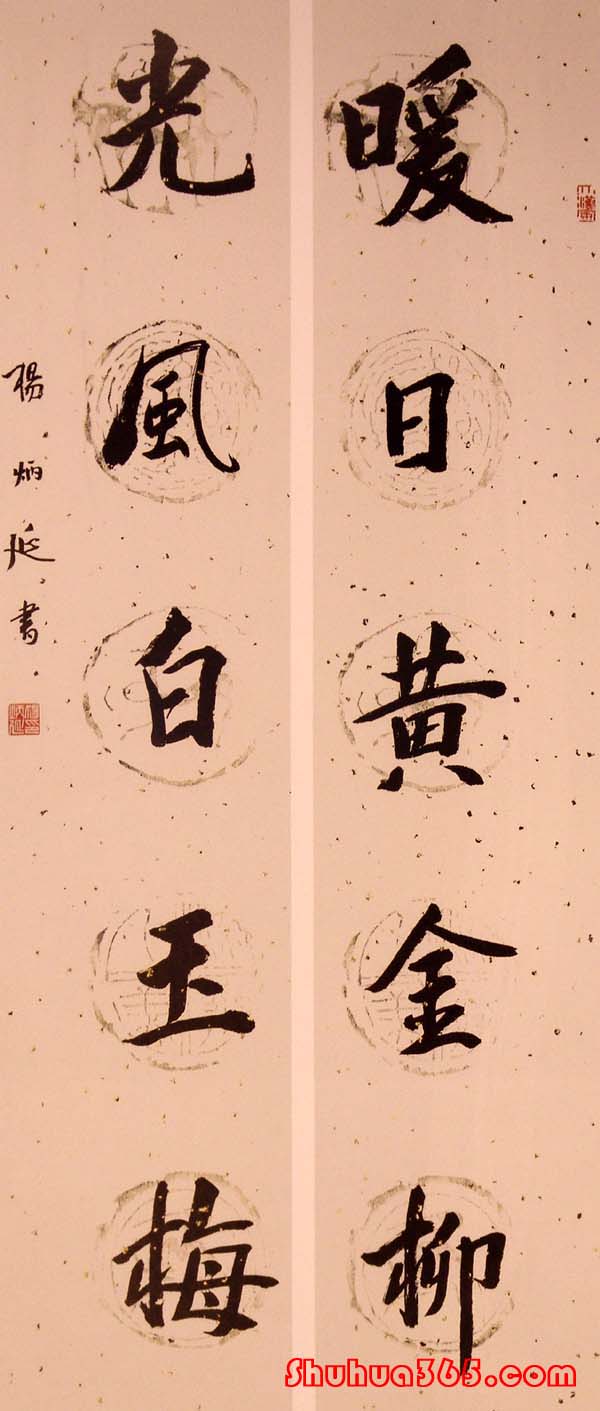 暖日黄金柳
光風白玉梅
楊炳延書
Shuhua365.com